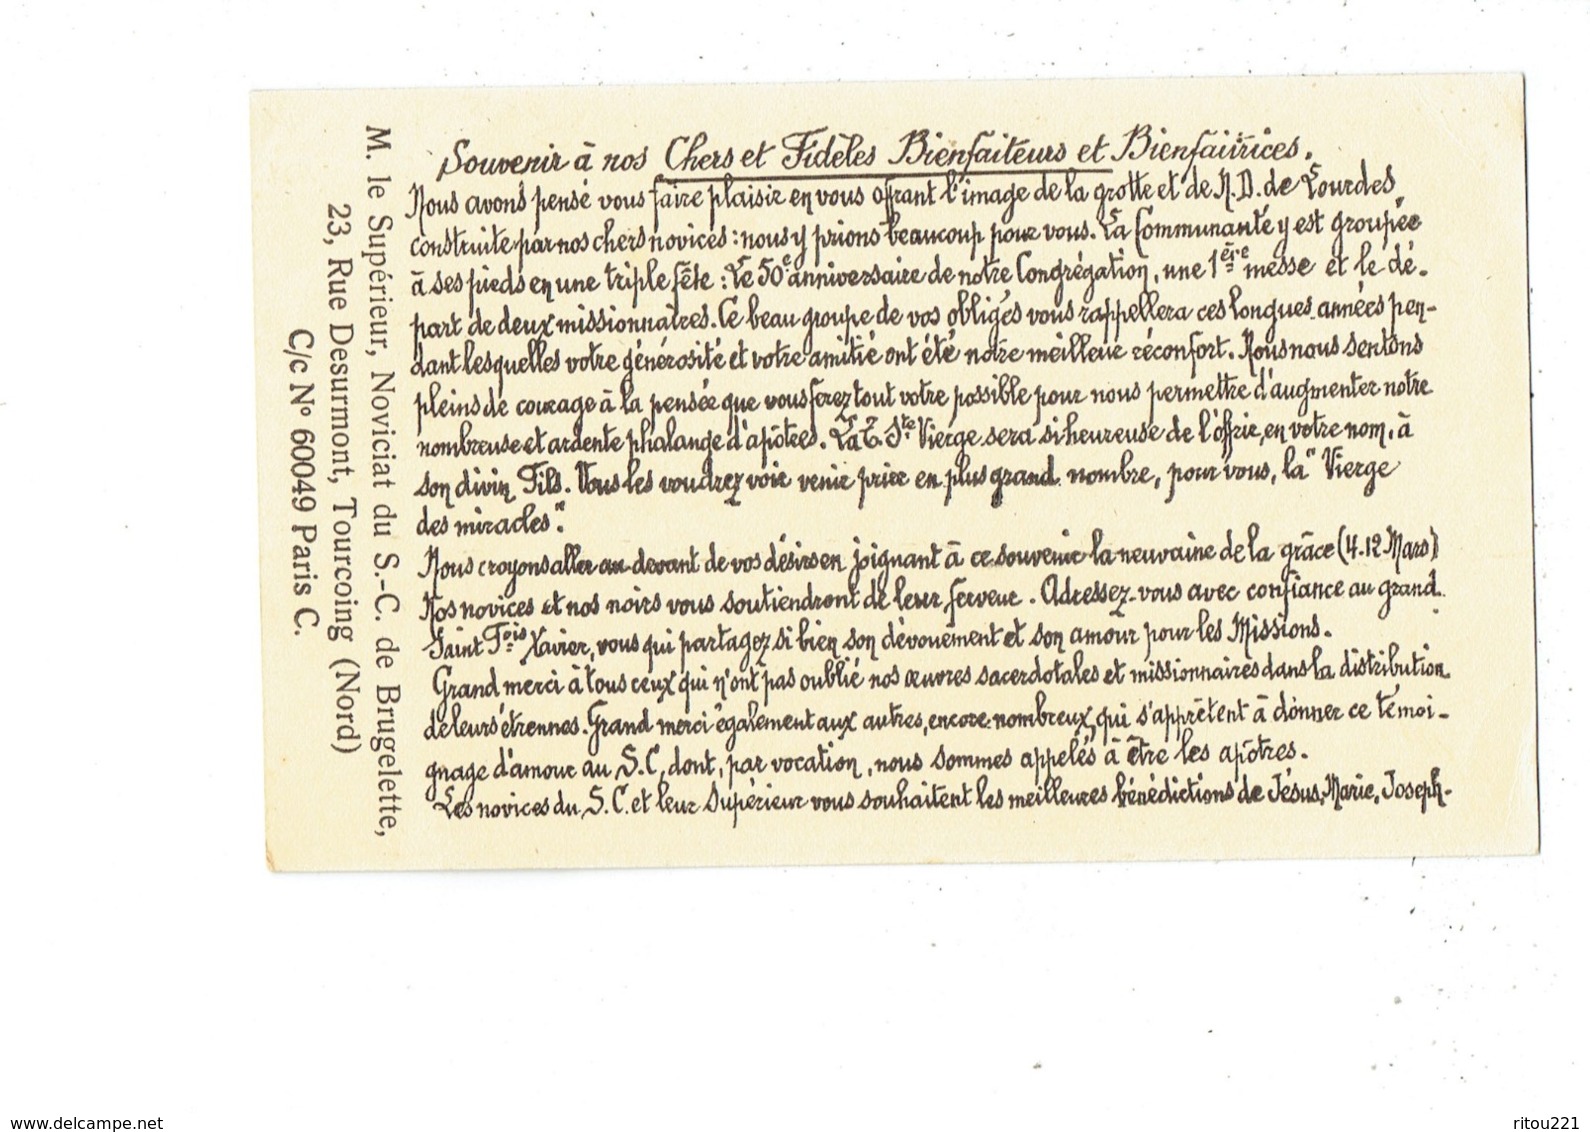 Souvenir à nos Chers et Fidèles Bienfaiteurs et Bienfaitrices.
Nous avons pensé vous faire plaisir en vous offrant l'image de la grotte et de N.D. de Lourdes
construite par nos chers novices : nous y prions beaucoup pour vous. La Communauté y est groupée
à ses pieds en une triple fête : Le 50e anniversaire de notre Congrégation, une 1ère messe et le dé-
part de deux missionnaires. Ce beau groupe de vos obligés vous rappellera ces longues années pen-
dant lesquelles votre générosité et votre amitié ont été notre meilleur réconfort. Nous nous sentons
pleins de courage à la pensée que vous ferez tout votre possible pour nous permettre d'augmenter notre
nombreuse et ardente phalange d'apôtres. La T. Ste Vierge sera si heureuse de l'offrir, en votre nom, à
son divin Fils. Vous les voudrez voir venir prier en plus grand nombre, pour vous, la "Vierge
des miracles".
Nous croyons aller au devant de vos désirs en joignant à ce souvenir la neuvaine de la grâce (4-12 Mars)
Nos novices et nos noirs vous soutiendront de leur ferveur. Adressez-vous avec confiance au grand
Saint Fois Xavier, vous qui partagez si bien son dévouement et son amour pour les Missions.
Grand merci à tous ceux qui n'ont pas oublié nos œuvres sacerdotales et missionnaires dans la distribution
de leurs étrennes. Grand merci également aux autres, encore nombreux, qui s'apprêtent à donner ce témoi-
gnage d'amour au S.C. dont, par vocation, nous sommes appelés à être les apôtres.
Les novices du S.C. et leur Supérieur vous souhaitent les meilleures bénédictions de Jésus, Marie, Joseph-
M. le Supérieur, Noviciat du S.-C. de Brugelette,
23, Rue Desurmont, Tourcoing (Nord)
C/c N° 60049 Paris C.
www.delcampe.net
ritou221